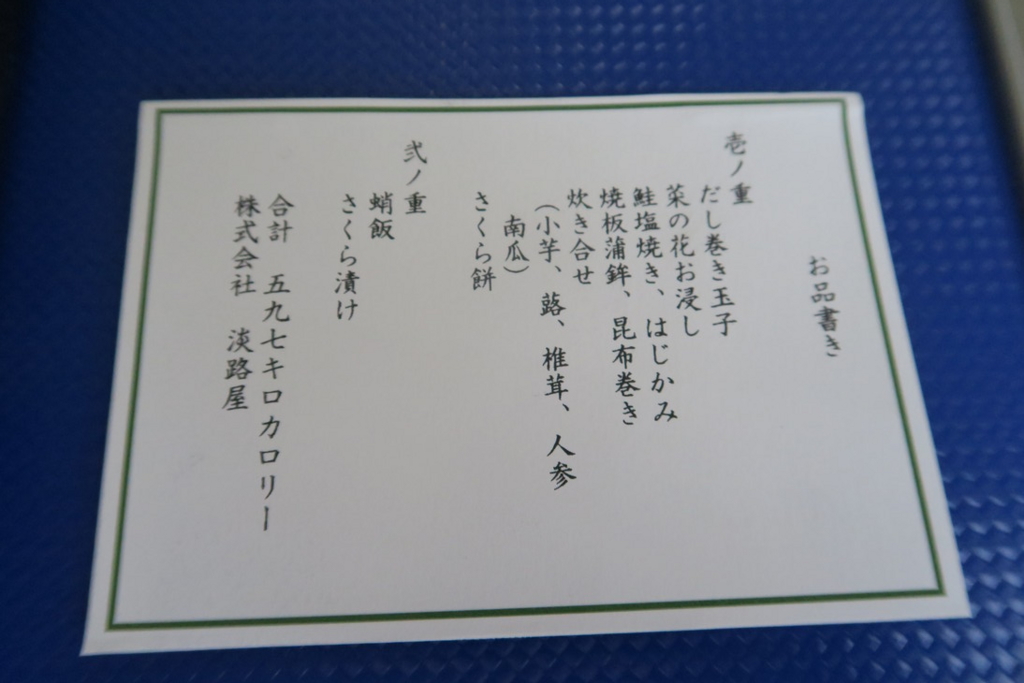 お品書き
壱ノ重
だし巻き玉子
菜の花お浸し
鮭塩焼き、はじかみ
焼板蒲鉾、昆布巻き
炊き合せ
（小芋、蕗、椎茸、人参
南瓜）
さくら餅
弐ノ重
蛸飯
さくら漬け
合計 五九七キロカロリー
株式会社 淡路屋